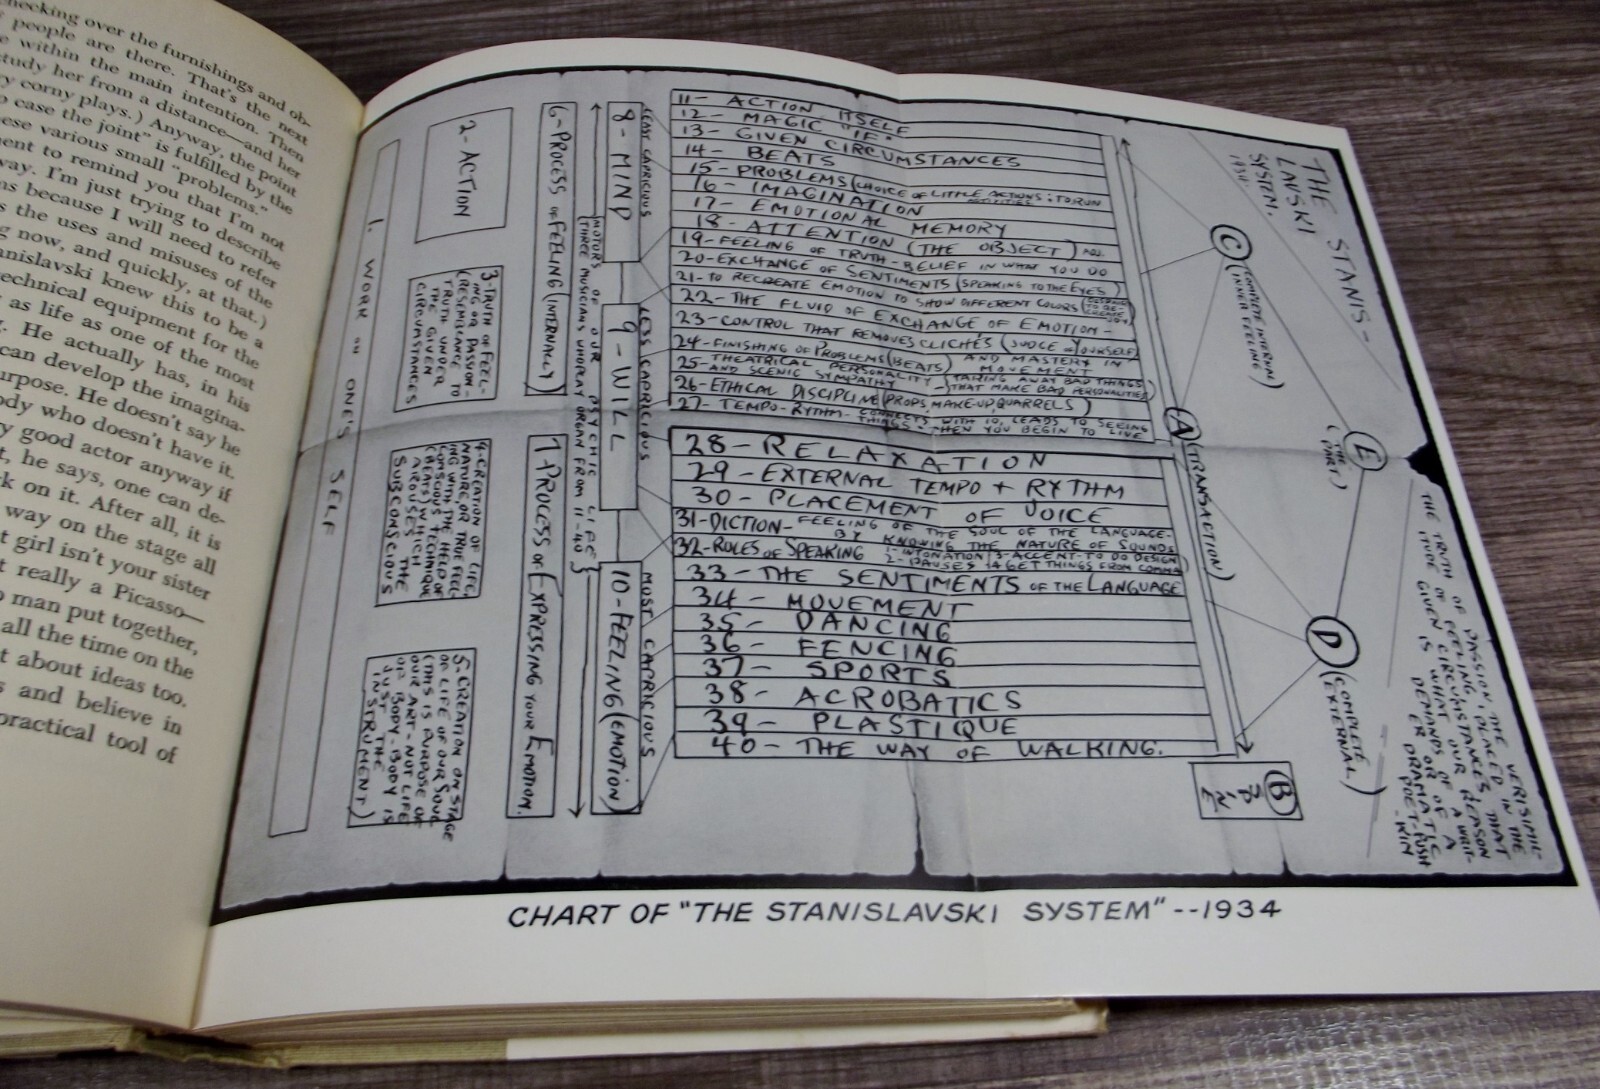 checking over the furnishings and ob-
people are there. That's the next
within the main intention. Then
study her from a distance—and her
corny plays.) Anyway, the point
case the joint" is fulfilled by the
these various small "problems."
to remind you that I'm not
way. I'm just trying to describe
because I will need to refer
the uses and misuses of the
now, and quickly, at that.)
Stanislavski knew this to be a
technical equipment for the
as life as one of the most
He actually has, in his
can develop the imagina-
He doesn't say he
who doesn't have it.
good actor anyway if
he says, one can de-
on it. After all, it is
way on the stage all
girl isn't your sister
really a Picasso—
man put together,
all the time on the
about ideas too.
and believe in
practical tool of
1. WORK ON ONE'S SELF
2-ACTION
3-TRUTH OF FEEL-
ING OR PASSION-
(RESEMBLANCE TO
TRUTH UNDER
THE GIVEN
CIRCUMSTANCES
4-CREATION OF LIFE,
NATURE, OR TRUE FEEL-
ING WITH THE HELP OF
CONSCIOUS TECHNIQUE
(BEATS) WHICH
AROUSES THE
SUBCONSCIOUS
5-CREATION ON STAGE
OF LIFE OF OUR SOUL
(THIS IS PURPOSE OF
OUR ART-NOT LIFE
OF BODY-BODY IS
JUST THE
INSTRUMENT)
6-PROCESS OF FEELING (INTERNALLY)
7 PROCESS OF EXPRESSING YOUR EMOTION.
MOTORS OF OUR PSYCHIC LIFE
(THREE MUSICIANS WHO PLAY ORGAN FROM 11-40)
8-MIND
9-WILL
10-FEELING (EMOTION)
LEAST CAPRICIOUS
LESS CAPRICIOUS
MOST CAPRICIOUS
11- ACTION ITSELF
12- MAGIC "IF"
13- GIVEN CIRCUMSTANCES
14- BEATS
15-PROBLEMS (CHOICE OF LITTLE ACTIONS: TO RUN
ACTIVITIES
16- IMAGINATION
17- EMOTIONAL MEMORY
18-ATTENTION (THE OBJECT)
19-FEELING OF TRUTH-BELIEF IN WHAT YOU DO
20-EXCHANGE OF SENTIMENTS (SPEAKING TO THE EYES)
21-TO RECREATE EMOTION TO SHOW DIFFERENT COLORS
22-THE FLUID OF EXCHANGE OF EMOTION-
23-CONTROL THAT REMOVES CLICHÉS (JUDGE OF YOURSELF)
24-FINISHING OF PROBLEMS (BEATS) AND MASTERY IN MOVEMENT
25-THEATRICAL PERSONALITY - (TAKING AWAY BAD THINGS
AND SCENIC SYMPATHY THAT MAKE BAD PERSONALITIES)
26-ETHICAL DISCIPLINE (PROPS, MAKE-UP, QUARRELS)
27-TEMPO-RYTHM- CONNECTS WITH 10, LEADS TO SEEING
THINGS. THEN YOU BEGIN TO LIVE
28-RELAXATION
29-EXTERNAL TEMPO + RYTHM
30-PLACEMENT OF VOICE
31-DICTION-FEELING OF THE SOUL OF THE LANGUAGE-
BY KNOWING THE NATURE OF SOUNDS
32-RULES OF SPEAKING 1-INTONATION 3-ACCENT-TO DO DESIGN
2-PAUSES 4 GET THINGS FROM COMMA
33-THE SENTIMENTS OF THE LANGUAGE
34- MOVEMENT
35- DANCING
36- FENCING
37- SPORTS
38- ACROBATICS
39- PLASTIQUE
40- THE WAY OF WALKING.
THE STANIS-
LAVSKI
SYSTEM.
1934.
C
COMPLETE INTERNAL
(INNER FEELING)
A
(TRANSACTION)
E
(THE
PART.)
D
(COMPLETE
EXTERNAL.)
B
THE TRUTH OF PASSION, THE VERISIMIL-
ITUDE OF FEELING, PLACED IN THE
GIVEN CIRCUMSTANCES, THAT
IS WHAT OUR REASON
DEMANDS OF A WRIT-
ER OR OF A
DRAMATIC
POET-PUSH
-KIN
CHART OF "THE STANISLAVSKI SYSTEM"--1934